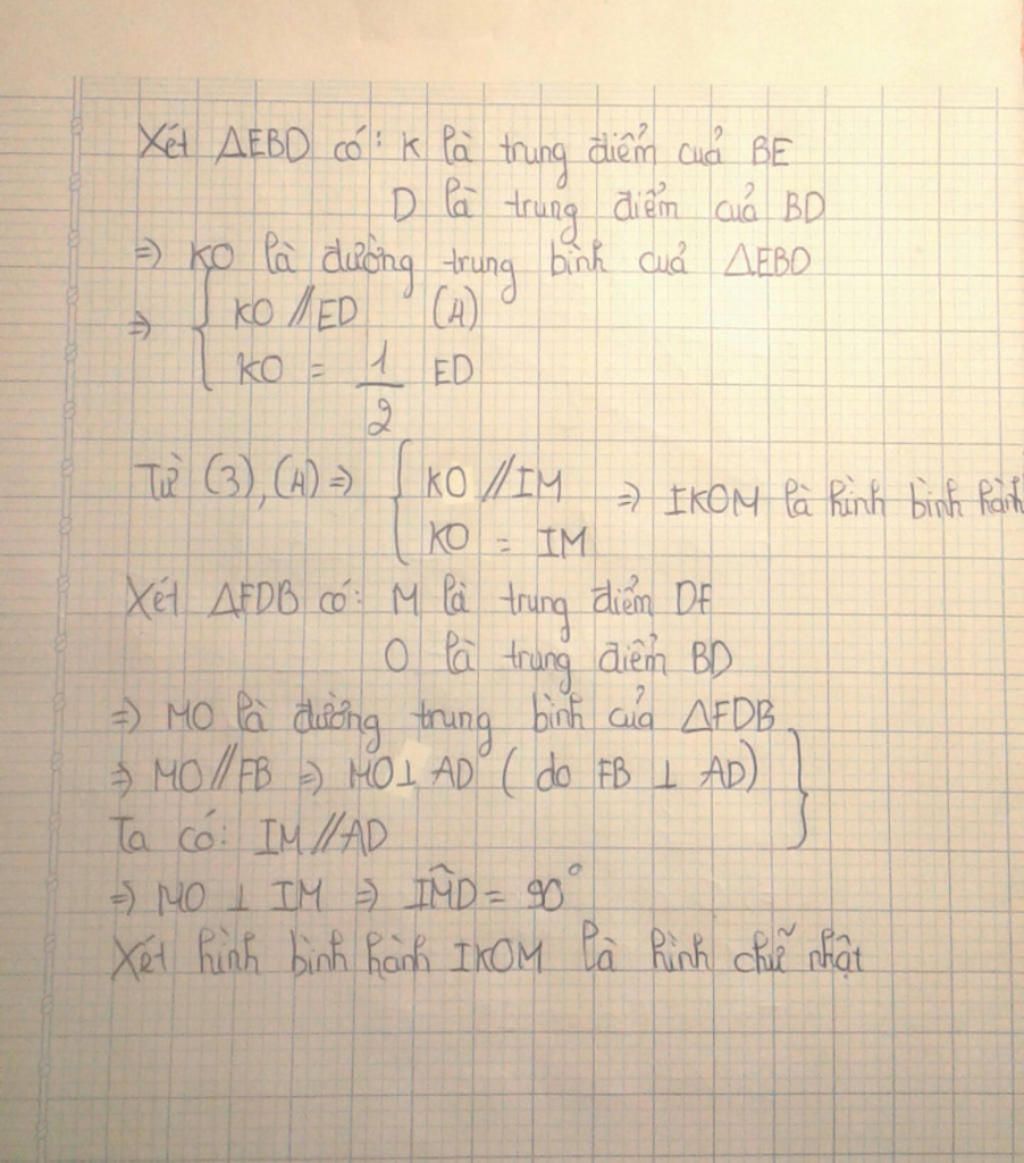 Xét ΔEBD có: K là trung điểm của BE
D là trung điểm của BD
=> KO là đường trung bình của ΔEBD
=> { KO // ED (4)
KO = 1/2 ED
Từ (3), (4) => { KO // IM
KO = IM => IKOM là hình bình hành
Xét ΔFDB có: M là trung điểm DF
O là trung điểm BD
=> MO là đường trung bình của ΔFDB
=> MO // FB => MO ⊥ AD (do FB ⊥ AD) }
Ta có: IM // AD
=> MO ⊥ IM => IM̂D = 90°
Xét hình bình hành IKOM là hình chữ nhật